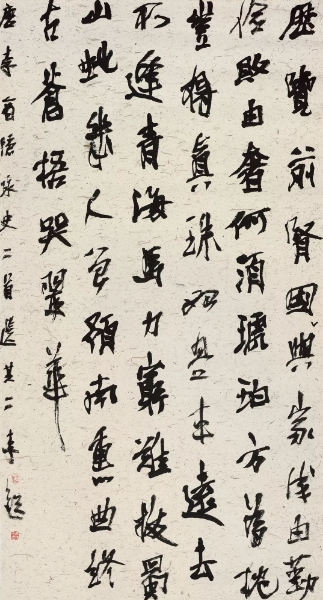 歷覽前賢國與家成由勤
儉敗由奢何須琥珀方為枕
豈得真珠始是車遠去
不逢青海馬力窮難拔蜀
山蛇幾人曾預南熏曲終
古蒼梧哭翠華
唐李商隱詠史二首選其二 李